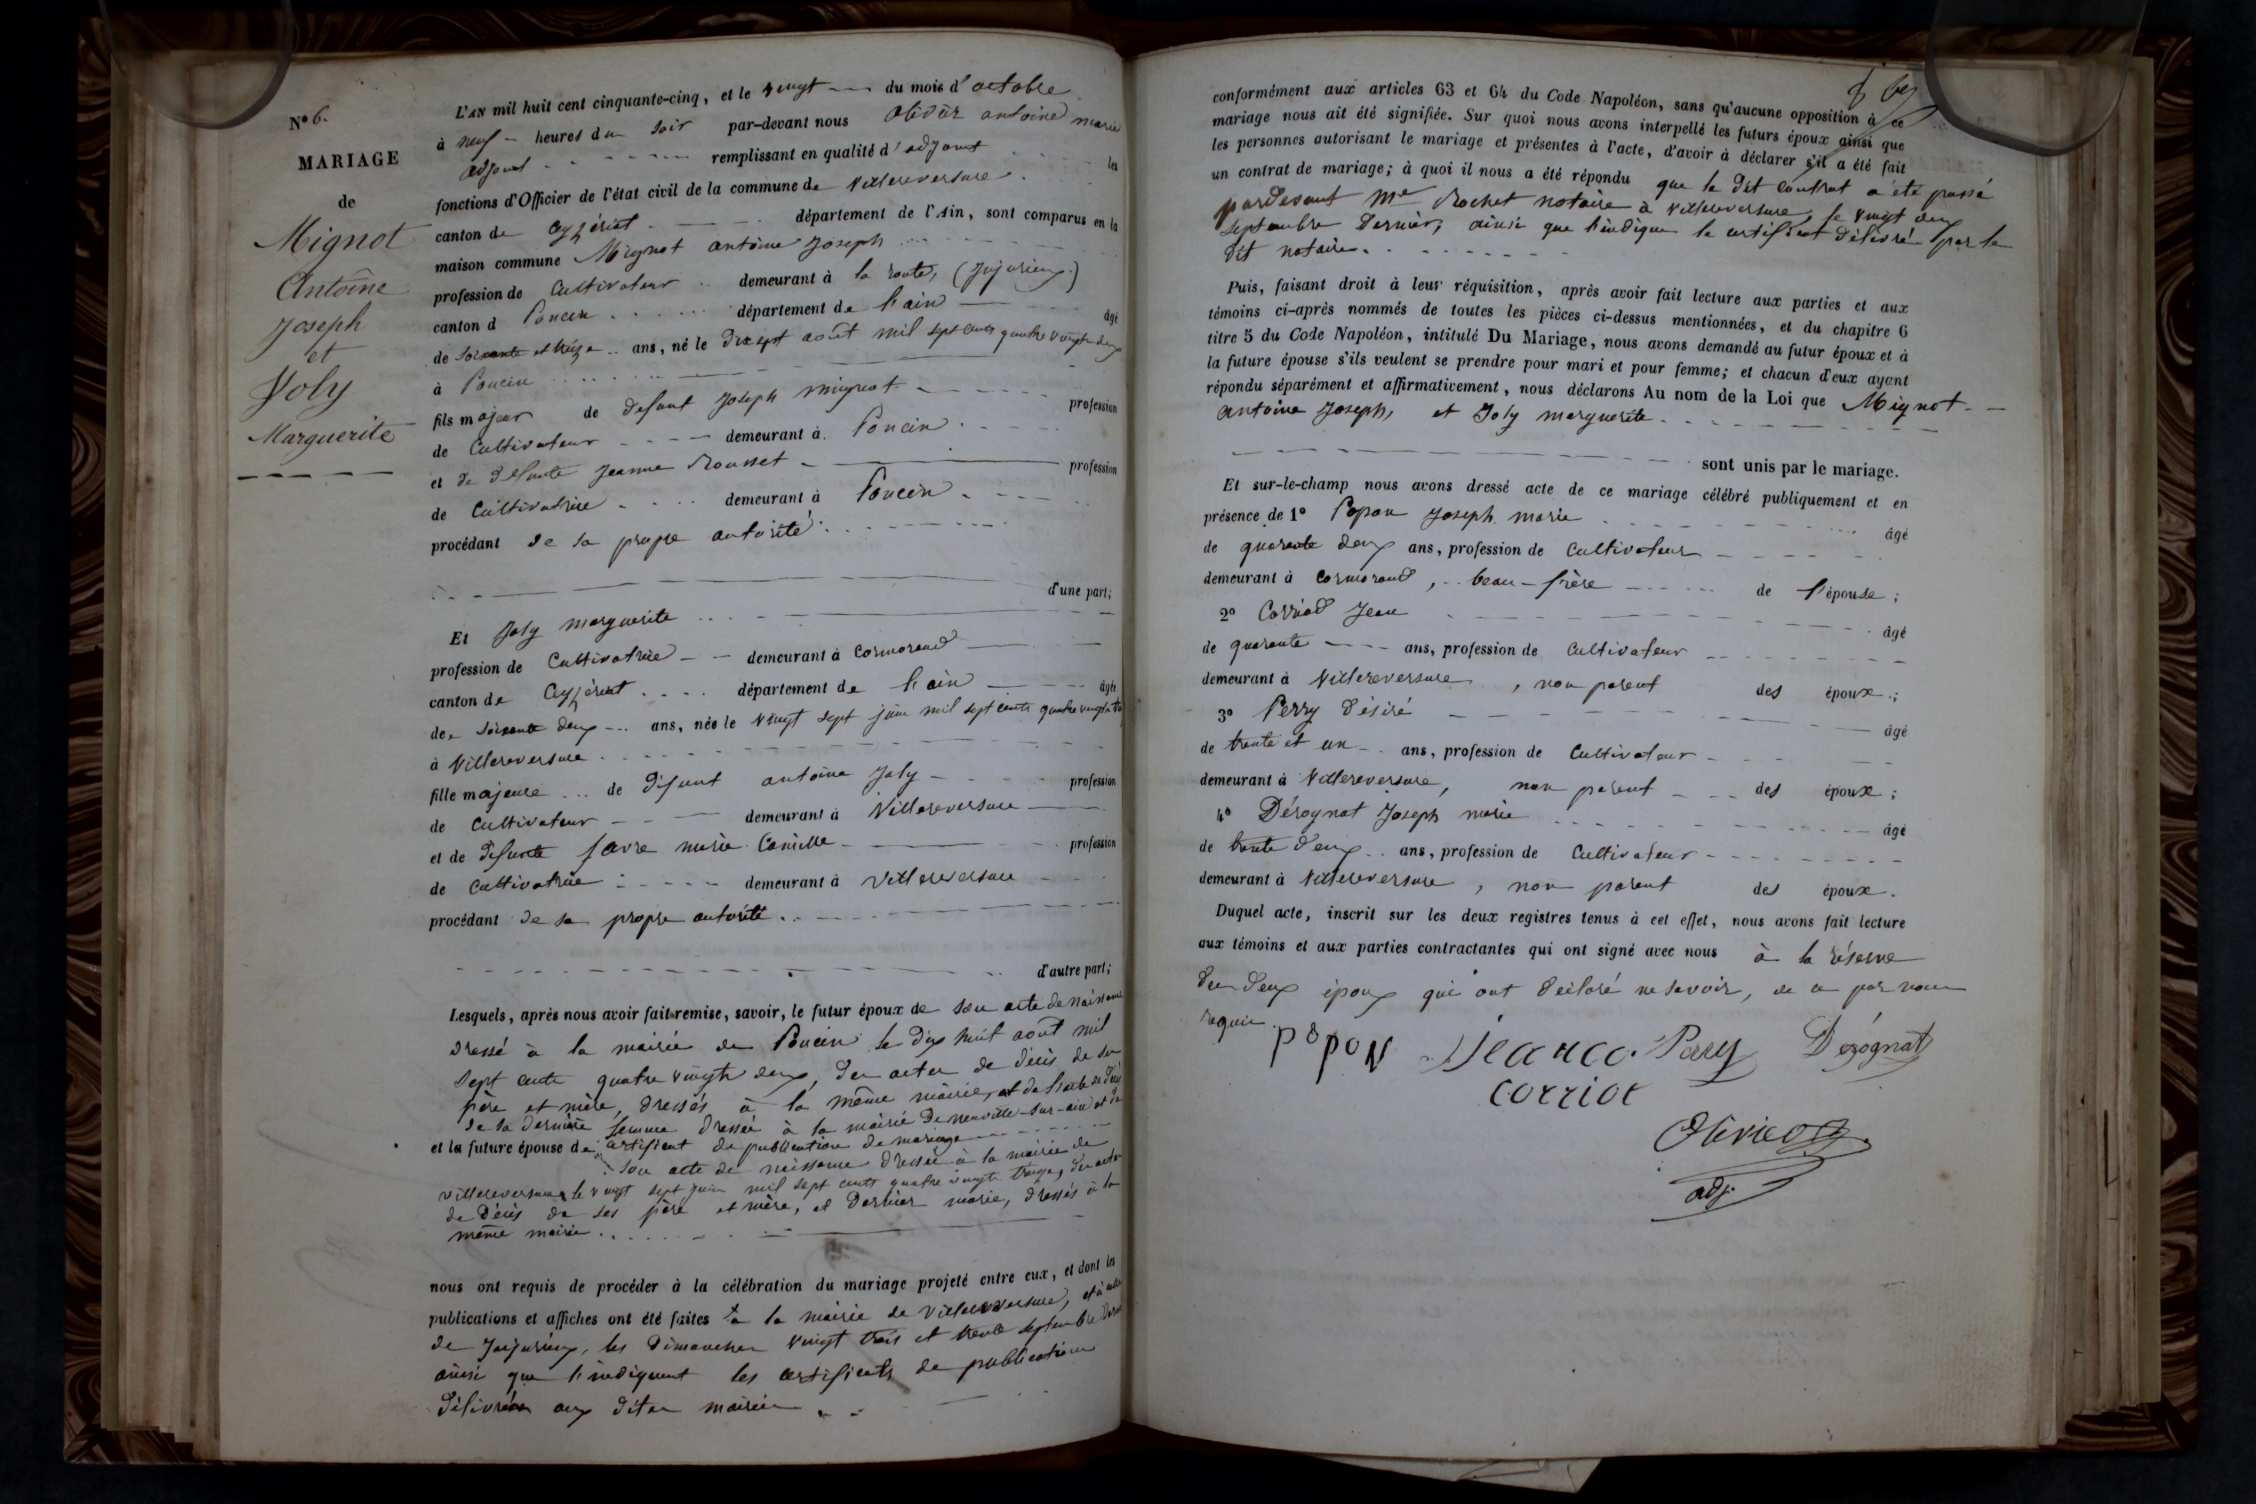 N° 6.
MARIAGE
de
Mignot
Antoine
Joseph
et
Joly
Marguerite
L'AN mil huit cent cinquante-cinq, et le vingt du mois d'octobre
à neuf heures du soir par-devant nous Olivier antoine marie
adjoint remplissant en qualité d'adjoint les
fonctions d'Officier de l'état civil de la commune de Villereversure
canton de Ceyzériat département de l'Ain, sont comparus en la
maison commune Mignot antoine Joseph
profession de Cultivateur demeurant à la route, (Jujurieux)
canton d Poncin département de l'ain âgé
de soixante et treize ans, né le dix sept août mil sept cents quatre vingts deux
à Poncin
fils majeur de défunt Joseph mignot profession
de Cultivateur demeurant à Poncin
et de défunte Jeanne Rousset profession
de Cultivatrice demeurant à Poncin
procédant de sa propre autorité
d'une part;
Et Joly marguerite
profession de Cultivatrice demeurant à Cormorand
canton de Ceyzériat département de l'ain âgée
de soixante deux ans, née le vingt sept juin mil sept cents quatre vingts
à Villereversure
fille majeure de défunt antoine Joly profession
de Cultivateur demeurant à Villereversure
et de défunte favre marie Camille profession
de Cultivatrice demeurant à Villereversure
procédant de sa propre autorité
d'autre part;
Lesquels, après nous avoir fait remise, savoir, le futur époux de son acte de naissance
dressé à la mairie de Poncin le dix huit août mil
sept cents quatre vingts deux, des actes de décès de ses
père et mère, dressés à la même mairie, et de l'acte de décès
de sa dernière femme dressée à la mairie de neuville-sur-ain et du
et la future épouse de certificat de publication de mariage
son acte de naissance dressée à la mairie de
villereversure le vingt sept juin mil sept cents quatre vingts treize, des actes
de décès de ses père et mère, et dernier marie, dressés à la
même mairie.
nous ont requis de procéder à la célébration du mariage projeté entre eux, et dont les
publications et affiches ont été faites à la mairie de Villereversure, et à celle
de Jujurieux, les Dimanches vingt trois et trente septembre dernier
ainsi que l'indiquent les certificats de publication
délivrés aux dites mairies
conformément aux articles 63 et 64 du Code Napoléon, sans qu'aucune opposition à ce
mariage nous ait été signifiée. Sur quoi nous avons interpellé les futurs époux ainsi que
les personnes autorisant le mariage et présentes à l'acte, d'avoir à déclarer s'il a été fait
un contrat de mariage; à quoi il nous a été répondu que le dit contrat a été passé
pardevant Me Rochet notaire à Villereversure, le vingt deux
septembre dernier, ainsi que l'indique le certificat délivré par le
dit notaire.
Puis, faisant droit à leur réquisition, après avoir fait lecture aux parties et aux
témoins ci-après nommés de toutes les pièces ci-dessus mentionnées, et du chapitre 6
titre 5 du Code Napoléon, intitulé Du Mariage, nous avons demandé au futur époux et à
la future épouse s'ils veulent se prendre pour mari et pour femme; et chacun d'eux ayant
répondu séparément et affirmativement, nous déclarons Au nom de la Loi que Mignot
antoine Joseph, et Joly marguerite
sont unis par le mariage.
Et sur-le-champ nous avons dressé acte de ce mariage célébré publiquement et en
présence de 1° Popon Joseph marie âgé
de quarante deux ans, profession de Cultivateur
demeurant à Cormorand, beau-frère de l'épouse;
2° Corriod Jean âgé
de quarante ans, profession de Cultivateur
demeurant à Villereversure, non parent des époux;
3° Perry Désiré âgé
de trente et un ans, profession de Cultivateur
demeurant à Villereversure, non parent des époux;
4° Dérognat Joseph marie âgé
de trente deux ans, profession de Cultivateur
demeurant à Villereversure, non parent des époux.
Duquel acte, inscrit sur les deux registres tenus à cet effet, nous avons fait lecture
aux témoins et aux parties contractantes qui ont signé avec nous à la réserve
des deux époux qui ont déclaré ne savoir, de ce par nous
requis.
POPON Jeanco. Perry Dérognat
corriot
Olivier
adj.